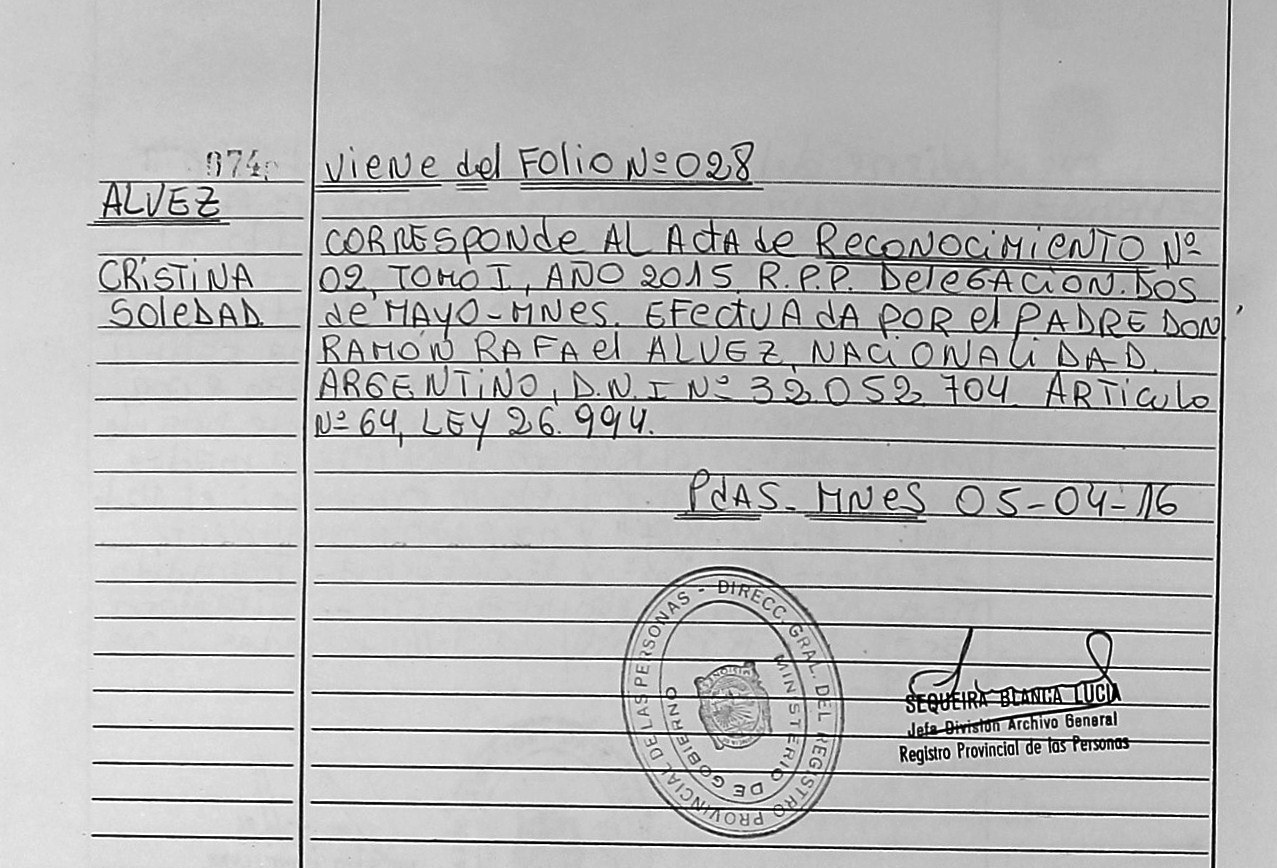 074
ALVEZ
CRISTINA
SOLEDAD
VIENE del FOLIO Nº 028
CORRESPONde AL ActA de RECONOCIMIENTO Nº
02, TOMO I, AÑO 2015. R.P.P. DELEGACION. DOS
de MAYO-MNES. EFECTUAdA POR el PADRE DON
RAMÓN RAFAel ALVEZ, NACIONALIDAD.
ARGENTINO, D.N.I Nº 32.052.704. ARTICULO
Nº 64, LEY 26.994.
PdAS. MNES 05-04-16
DIRECC. GRAL. DEL REGISTRO PROVINCIAL DE LAS PERSONAS -
MINISTERIO DE GOBIERNO
SEQUEIRA BLANCA LUCIA
Jefa División Archivo General
Registro Provincial de las Personas